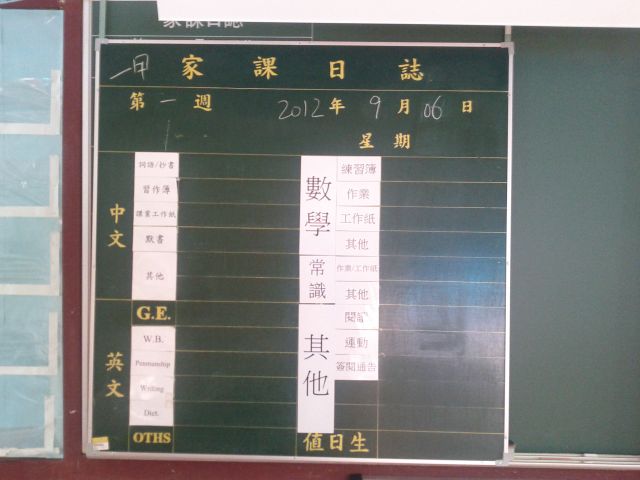 家課日誌
一甲 家課日誌
第一週 2012年9月06日
星期
中文
詞語/抄書
習作簿
課業工作紙
默書
其他
英文
G.E.
W.B.
Penmanship
Writing
Dict.
OTHS
數學
練習簿
作業
工作紙
其他
常識
作業/工作紙
其他
其他
閱讀
運動
簽閱通告
值日生